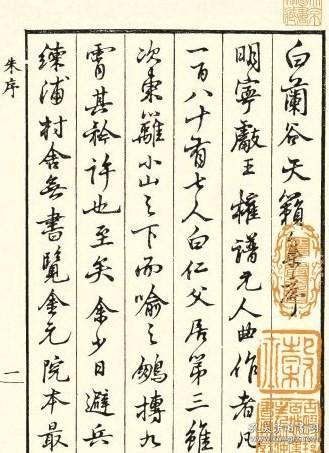 白蘭谷天籟集序
明寧獻王權譜元人曲作者凡
一百八十有七人白仁父居第三雖
次東籬小山之下而喻之鵬摶九
霄其矜許也至矣余少日避兵
練浦村舍無書覽金元院本最
朱序
一